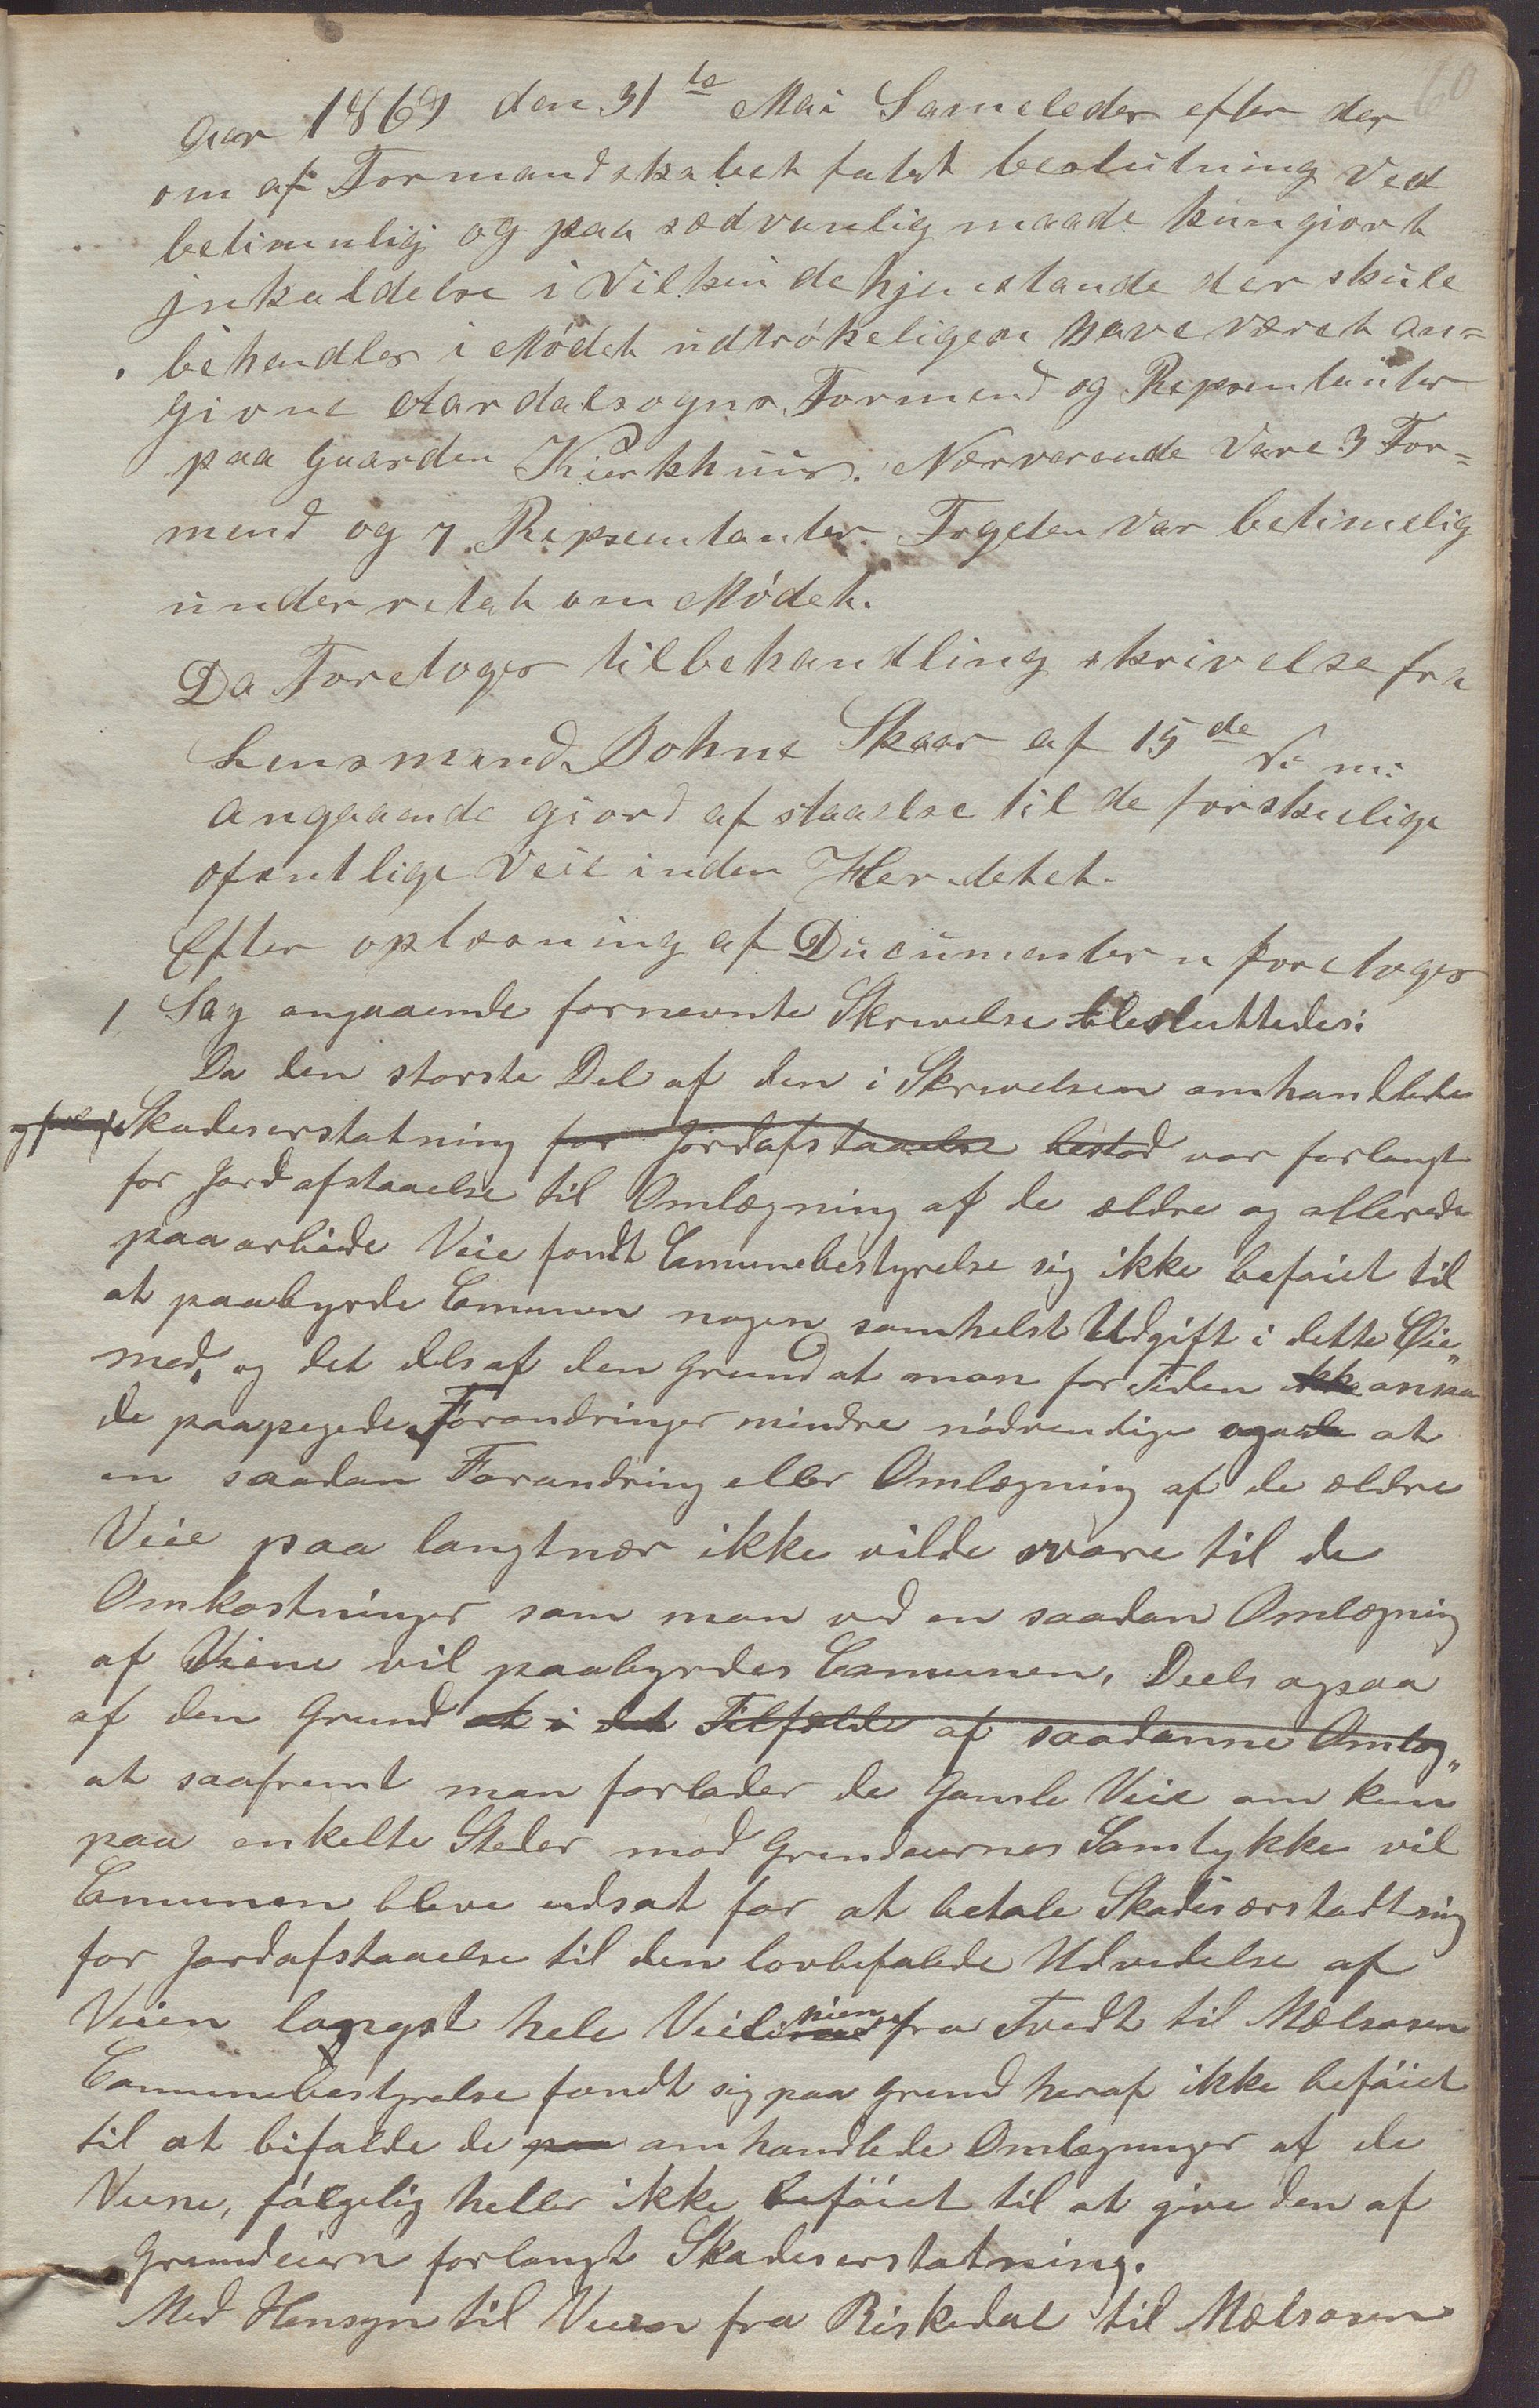 60
Aar 1869 den 31te Mai Sameledes efter der
om af Formandskabet fatet beslutning ved
betimelig og paa sædvanlig maade kungjort
jnkaldelse i Vilken de hjenstande der skule
behandles i Mødet udtrøkeligen have været an=
givne Aardalsogns Formend og Repsentanter
paa Gaarden Kirkhuus. Nærverende Vare 3 For=
mend og 7 Repsentanter Fogeden var betimelig
underretet om Mødet.
Da Foretoges tilbehandling skrivelse fra
Lensmand Bohne Skaar af 15de d: m:
angaaende giord afstaaelse til de forskielige
ofentlige Veie inden Heredetet.
Efter oplæsning af Ducumenter n foretoges
1 Sag angaaende fornevnte Skrivelse besluttedes:
Da den største Del af den i Skrivelsen omhandlede
Skadeserstatning for Jordafstaaelse bestod var forlangt
for Jordafstaaelse til Omlægning af de ældre og allerede
paaarbeide Veie fandt Comunebestyrelse sig ikke beføiet til
at paabyrde Comunen nogen somhelst Udgift i dette Øie„
med, og det dels af den Grund at man for Tiden ikke ansaa
de paapegede Forandringer mindre nödvendige ogsaa at
en saadan Forandring eller Omlægning af de ældre
Veie paa langtnær ikke vilde svare til de
Omkostninger som man ved en saadan Omlægning
af Veiene vil paabyrdes Comunen, Deels ogsaa
af den Grund at i det Tilfælde af saadanne Omlæg„
at saafremt man forlader de Gamle Veie om kun
paa enkelte Steder med Grundeiernes Samtykke vil
Comunen bleve udsat for at betale Skadesærstadtning
for Jordafstaaelse til den lovbefalede Udvidelse af
Veien langst hele Veilinien fra Tvedt til Mælsosen
Comunebestyrelse fandt sig paa Grund heraf ikke beføiet
til at bifalde de paa omhandlede Omlægninger af de
Veiene, følgelig heller ikke beføiet til at give den af
Grundeiern forlangt Skadeserstatning.
Med Hensyn til Veien fra Riskedal til Mælsosen